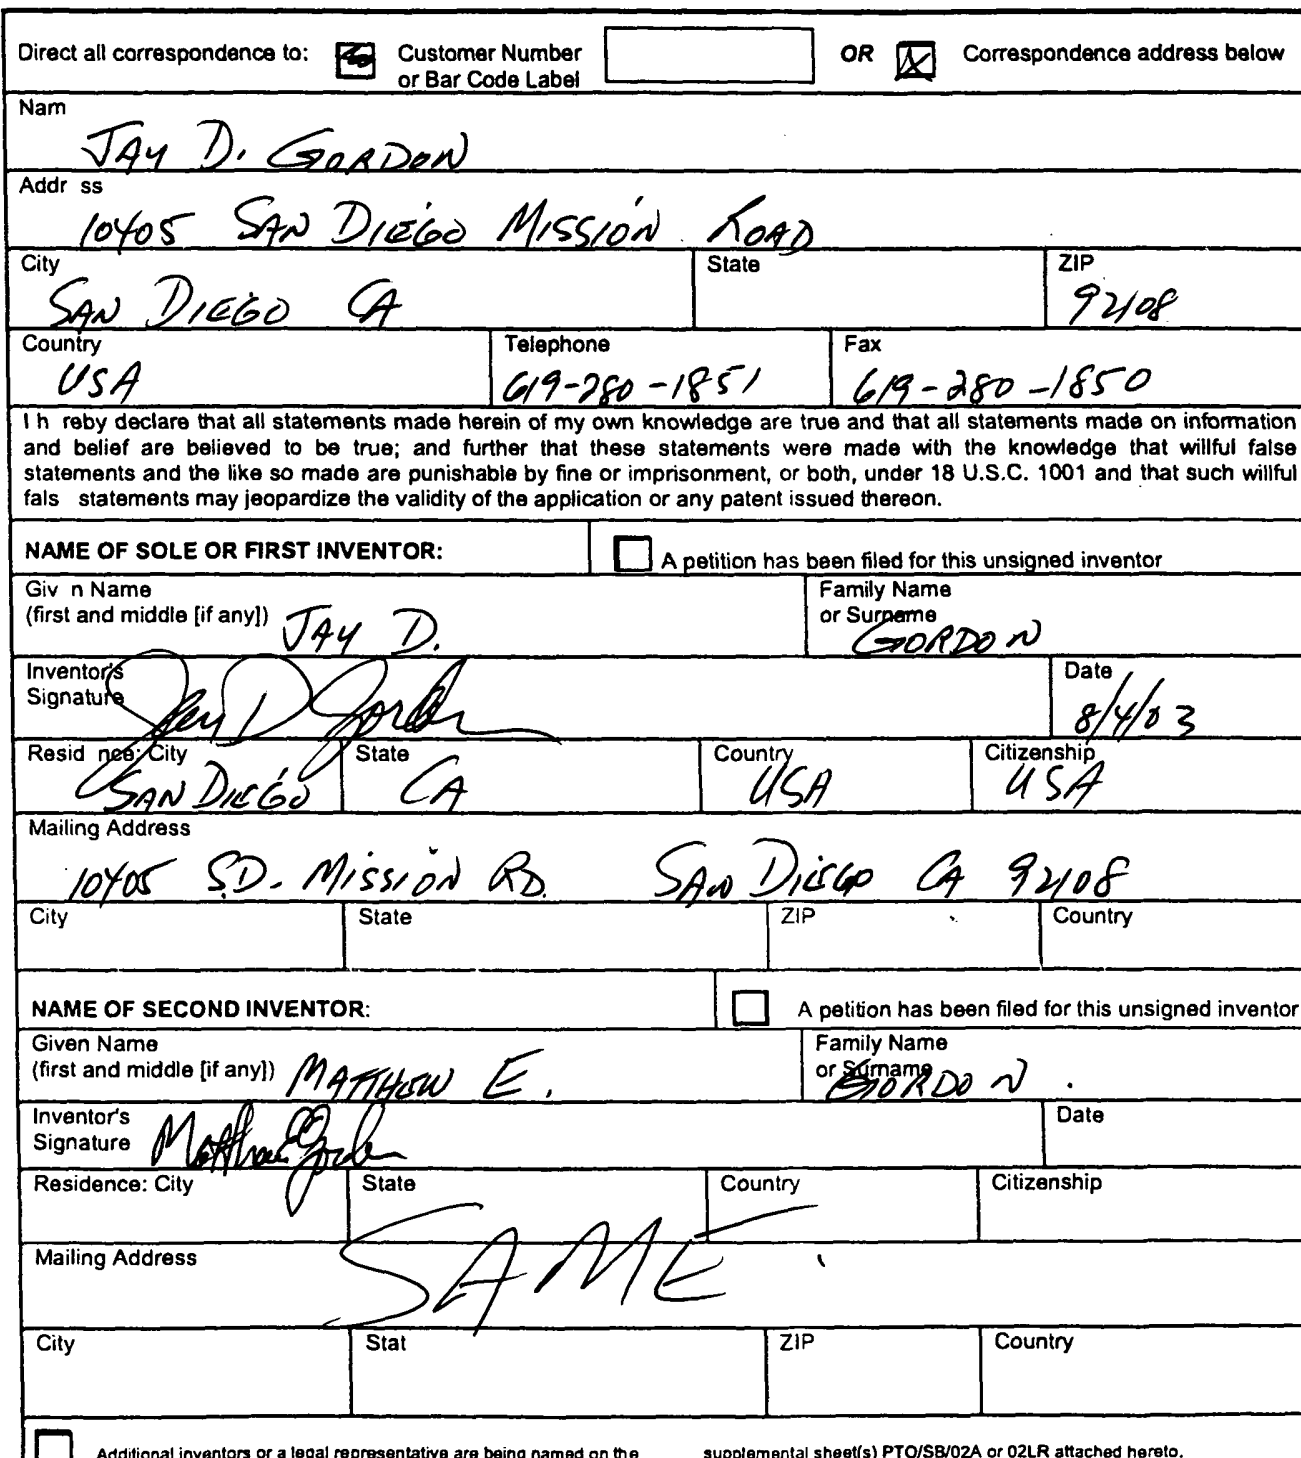 Direct all correspondence to: Customer Number or Bar Code Label OR Correspondence address below
Nam
JAY D. GORDON
Addr ss
10405 SAN DIEGO MISSION ROAD
City State ZIP
SAN DIEGO CA 92108
Country Telephone Fax
USA 619-280-1851 619-280-1850
I h reby declare that all statements made herein of my own knowledge are true and that all statements made on information
and belief are believed to be true; and further that these statements were made with the knowledge that willful false
statements and the like so made are punishable by fine or imprisonment, or both, under 18 U.S.C. 1001 and that such willful
fals statements may jeopardize the validity of the application or any patent issued thereon.
NAME OF SOLE OR FIRST INVENTOR: A petition has been filed for this unsigned inventor
Giv n Name Family Name
(first and middle [if any]) JAY D. or Surname GORDON
Inventor's Date
Signature Jay D Gordon 8/4/03
Resid nce: City State Country Citizenship
SAN DIEGO CA USA USA
Mailing Address
10405 S.D. MISSION RD. SAN DIEGO CA 92108
City State ZIP Country
NAME OF SECOND INVENTOR: A petition has been filed for this unsigned inventor
Given Name Family Name
(first and middle [if any]) MATTHEW E. or Surname GORDON.
Inventor's Date
Signature Matthew E Gordon
Residence: City State Country Citizenship
Mailing Address
SAME
City Stat ZIP Country
Additional inventors or a legal representative are being named on the supplemental sheet(s) PTO/SB/02A or 02LR attached hereto.